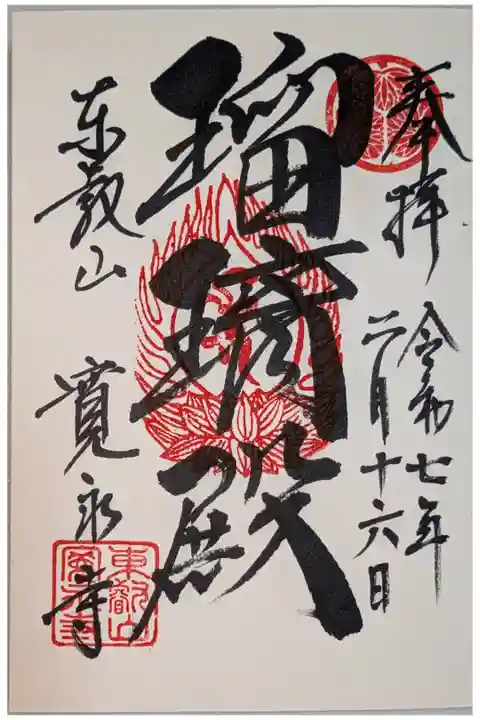 奉拝
令和七年
二月十六日
瑠璃殿
東叡山 寛永寺
東叡山